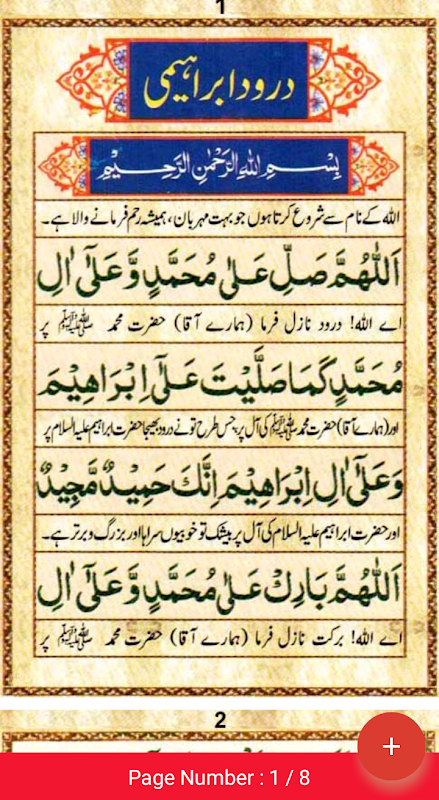 1
درود ابراہیمی
بِسْمِ اللهِ الرَّحْمٰنِ الرَّحِيْمِ
اللہ کے نام سے شروع کرتا ہوں جو بہت مہربان، ہمیشہ رحم فرمانے والا ہے۔
اَللّٰهُمَّ صَلِّ عَلٰى مُحَمَّدٍ وَّعَلٰٓى اٰلِ
اے اللہ! درود نازل فرما (ہمارے آقا) حضرت محمد ﷺ پر
مُحَمَّدٍ كَمَا صَلَّيْتَ عَلٰٓى اِبْرَاهِيْمَ
اور (ہمارے آقا) حضرت محمد ﷺ کی آل پر، جس طرح تو نے درود بھیجا حضرت ابراہیم علیہ السلام پر
وَعَلٰٓى اٰلِ اِبْرَاهِيْمَ اِنَّكَ حَمِيْدٌ مَّجِيْدٌ
اور حضرت ابراہیم علیہ السلام کی آل پر بیشک تو خوبیوں سراہا اور بزرگ و برتر ہے۔
اَللّٰهُمَّ بَارِكْ عَلٰى مُحَمَّدٍ وَّعَلٰٓى اٰلِ
اے اللہ! برکت نازل فرما (ہمارے آقا) حضرت محمد ﷺ پر
2
+
Page Number : 1 / 8